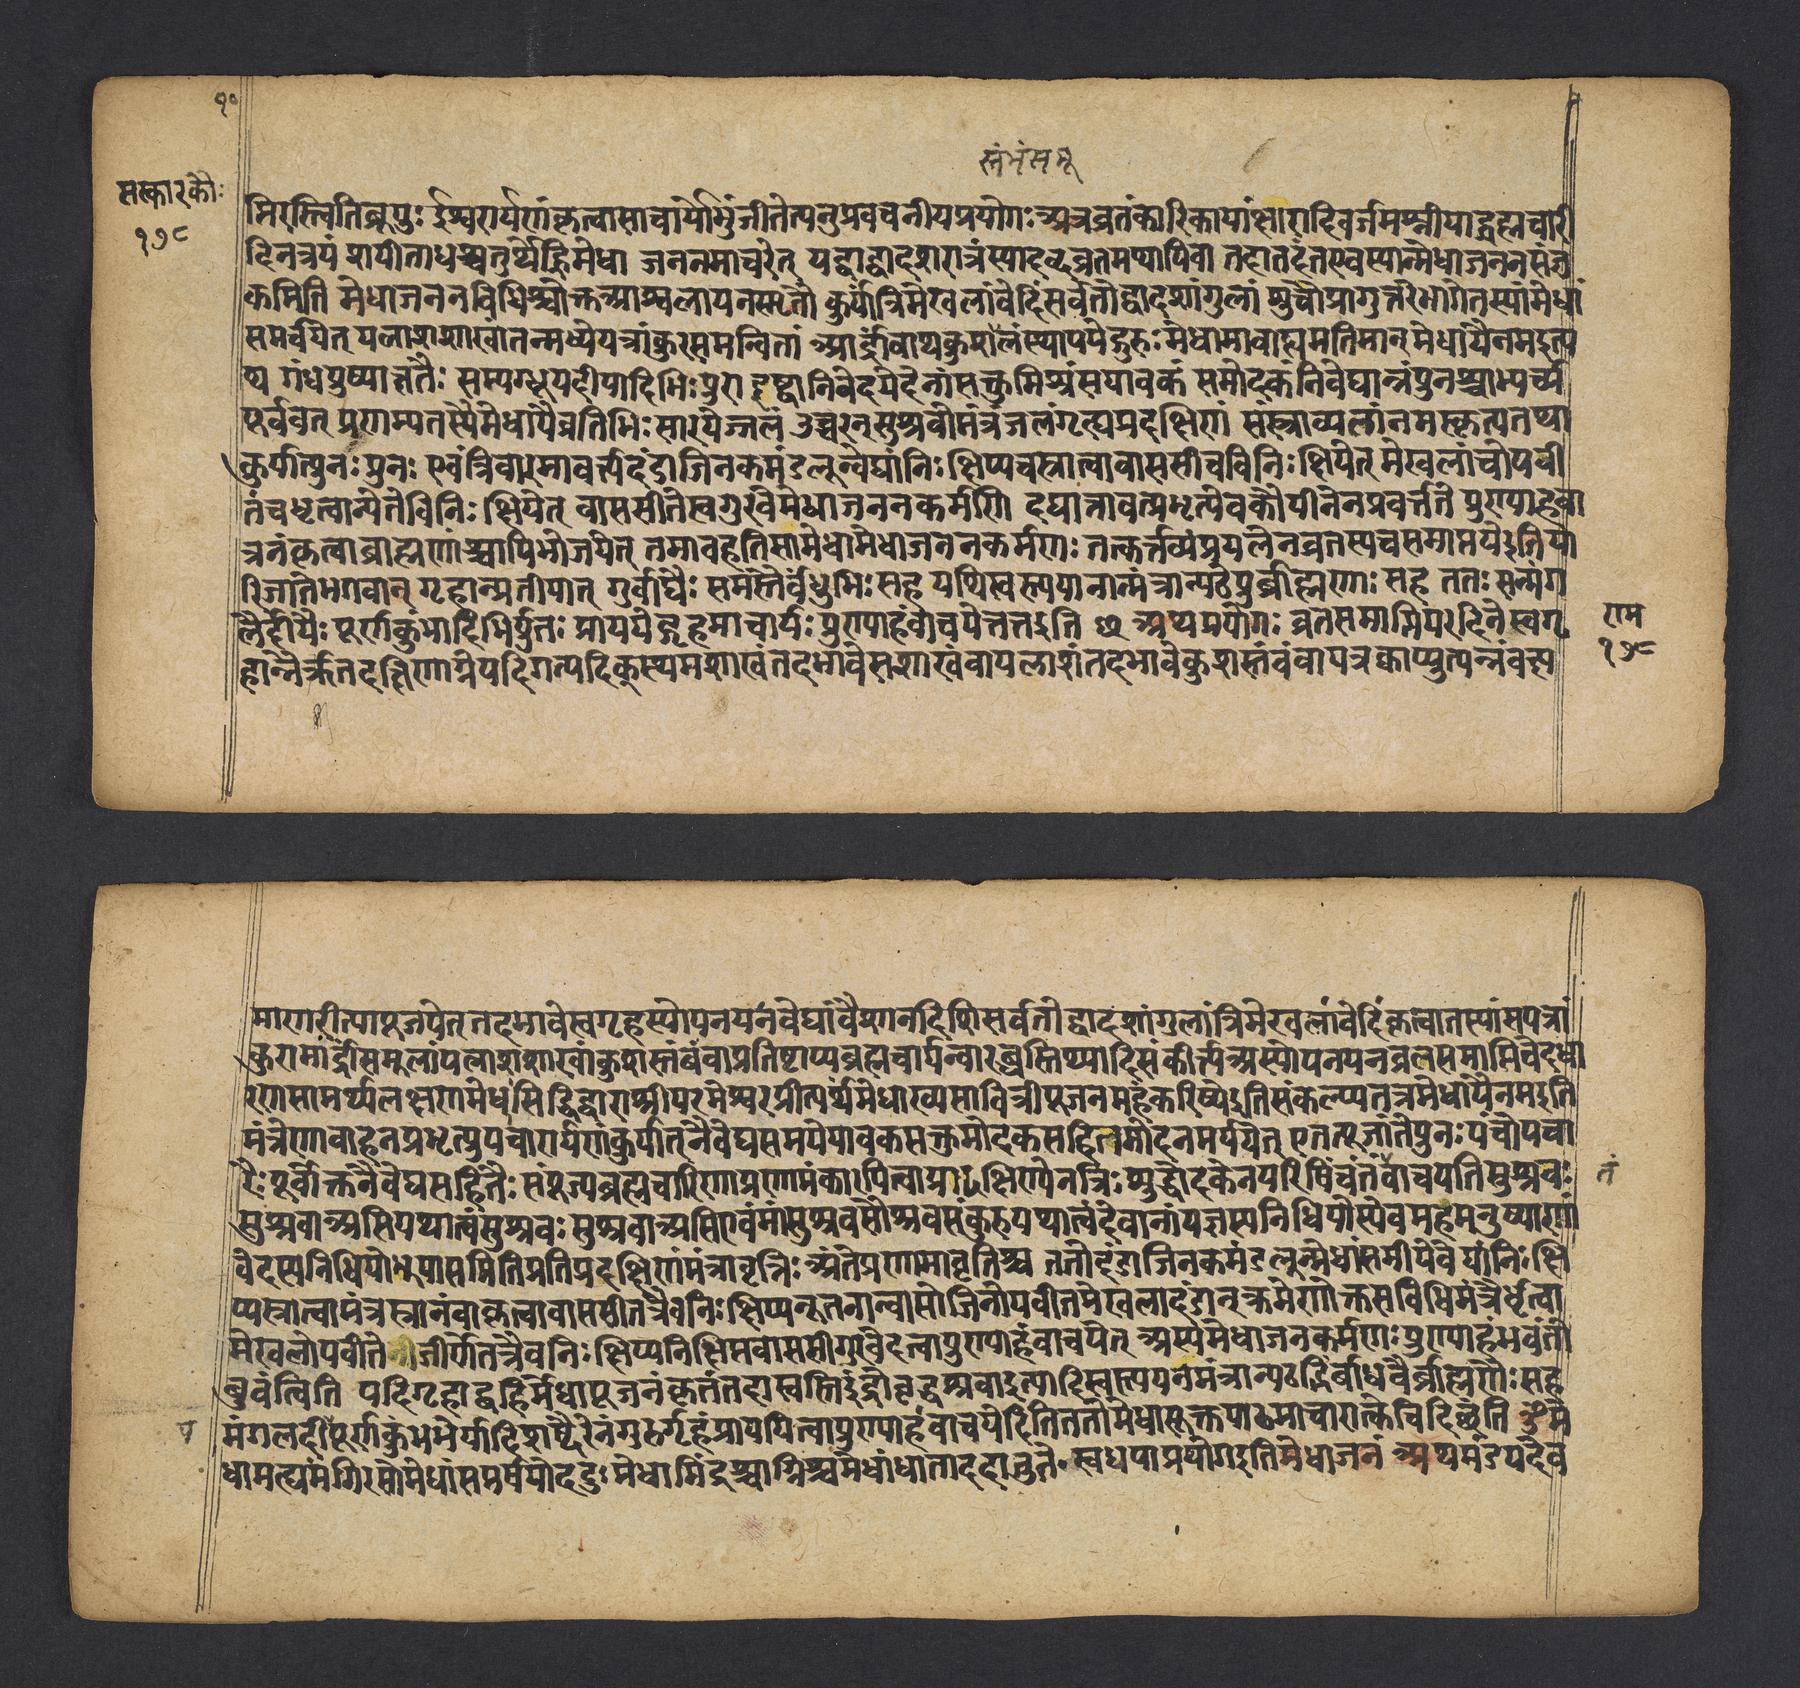 १०
संस्कारकौः
१७८
मिरस्त्वितिब्रूयुः ईश्वरार्पणंकृत्वासाचार्योभुंजीतेत्यनुप्रवचनीयप्रयोगः अत्रव्रतंकारिकायां क्षारादिवर्जमश्नीयाद्ब्रह्मचारी
दिनत्रयं शयीताधश्चतुर्थेह्निमेधा जननमाचरेत् यद्वाद्वादशरात्रंस्यादब्दव्रतमथापिवा तदातदंतएवस्यान्मेधाजननसंज्ञ
कमिति मेधाजननविधिश्चोक्तआश्वलायनस्मृतौ कुर्यात्रिमेखलांवेदिंसर्वतोद्वादशांगुलां शुचौप्रागुत्तरेभागेतस्यांमेधां
समर्चयेत् पलाशशाखातन्मध्येपत्रांकुरसमन्वितां आर्द्रांवाथकुशमूलंस्थापयेद्गुरुः मेधामावाह्यमतिमान् मेधायैनमइत्य
थ गंधपुष्पाक्षतैः सम्यग्धूपदीपादिभिः पुरा दृष्ट्वानिवेदयेदेनांसक्तुमिश्रंसपावकं समोदकंनिवेद्यान्नंपुनश्चाभ्यर्च्य
पूर्ववत् प्रणम्यतस्यैमेधायैव्रतिभिः सारयेज्जलं उच्चरन्सुश्रवोमंत्रंजलंगृह्यप्रदक्षिणं संस्त्राव्यलांनमस्कृत्यतथा
कुर्यात्पुनः पुनः एवंत्रिवारमावर्त्यदंडाजिनकमंडलून्वेद्यांनिः क्षिप्यचस्नात्वावाससीचविनिः क्षिपेत् मेखलांचोपवी
तंचधृत्वान्येतैविनिः क्षिपेत् वाससीतेस्वगुरवेमेधाजननकर्मणि दद्यात्तावत्प्रभृत्येवकौपीनेनप्रवर्त्तते पुण्याहवा
चनंकृत्वाब्राह्मणांश्चापिभोजयेत् तमावहतिसामेधामेधाजननकर्मणः तत्कर्त्तव्यंप्रयत्नेनव्रतस्यचसमाप्तयेइतिपा
रिजातेभगवान् गृहान्प्रतीयात् गुर्वाद्यैः समस्तैर्बंधुभिः सह पथिस्वस्त्ययनान्मंत्रान्पठेयुर्ब्राह्मणाः सह ततः सन्मंग
लैर्दीपैः पूर्णकुंभादिभिर्युतः प्रापयेद्गृहमाचार्यः पुण्याहंवाचयेत्ततइति अथप्रयोगः व्रतसमाप्तिपरदिनेस्वगृ
हान्नैर्ऋतदक्षिणाग्नेयदिगत्यदिक्स्थमशाखंतदभावेसशाखंवापलाशंतदभावेकुशस्तंबंवायत्रक्वाप्युत्पन्नंवक्ष्य
राम
१७८
माणरीत्यापूजयेत् तदभावेस्वगृहस्योपनयनवेद्यांवैशानदिशिसर्वतोद्वादशांगुलांत्रिमेखलांवेदिंकृत्वातस्यांसपत्रां
कुरामार्द्रांसमूलांपलाशशाखांकुशस्तंबंवाप्रतिष्ठाप्यब्रह्मचार्यन्वारब्धस्तिथ्यादिसंकीर्त्यअस्योपनयनव्रतसमाप्तिवेदधा
रणसामर्थ्यलक्षणमेधासिद्धिद्वाराश्रीपरमेश्वरप्रीत्यर्थंमेधाख्यसावित्रीपूजनमहंकरिष्येइतिसंकल्प्यतत्रमेधायैनमइति
मंत्रेणावाहनप्रभृत्युपचारार्पणंकुर्यात्तंनैवेद्यसमयेपावकसक्तुमोदकसहितमोदनमर्पयेत् एतत्पूजांतेपुनः पंचोपचा
रैः पूर्वोक्तनैवेद्यसहितैः संपूज्यब्रह्मचारिणाप्रणामंकारयित्वाप्रादक्षिण्येनत्रिः शुद्धोदकेनपरिषिंचंतंवाचयति सुश्रवः
तं
सुश्रवाअसियथात्वंसुश्रवः सुश्रवाअसिएवंमांसुश्रवसौश्रवसंकुरुयथात्वंदेवानांयज्ञस्यनिधिपोस्येवमहंमनुष्याणां
वेदस्यनिधिपोभूयासमितिप्रतिप्रदक्षिणंमंत्रावृत्तिः अंतेप्रणामावृत्तिश्च ततोदंडाजिनकमंडलून्मेधांसमीपेवेद्यांनिः क्षि
प्यस्नात्वामंत्रस्नानंवाकृत्वावाससीतत्रैवनिः क्षिप्यनूतनान्वासोजिनोपवीतमेखलादंडान्क्रमेणोक्तसविधिमंत्रैर्धृत्वा
मेखलोपवीते जीर्णेतत्रैवनिः क्षिप्यनिक्षिप्तवाससीगुरवेदत्वापुण्याहंवाचयेत् अस्यमेधाजनकर्मणः पुण्याहंभवंतो
ब्रुवंत्विति यदिगृहाद्बहिर्मेधापूजनंकृतंतदास्वस्तिइंद्रोवृद्धश्रवाइत्यादिस्वस्त्ययनेमंत्रान्पठद्भिर्बांधवैर्ब्राह्मणैः सह
मंगलदीपपूर्णकुंभभेर्यादिशब्दैरेनंगुरुर्गृहंप्रापयित्वापुण्याहंवाचयेदितिततोमेधासूक्तपाठमाचारात्केचिदिच्छंति ॐ मे
धामह्यमंगिरसोमेधांसप्तर्षयोददुः मेधामिंद्रश्चाग्निश्चमेधांधाताददातुते स्वधयाप्रयोगइतिमेधाजननं अथमंडपदेव